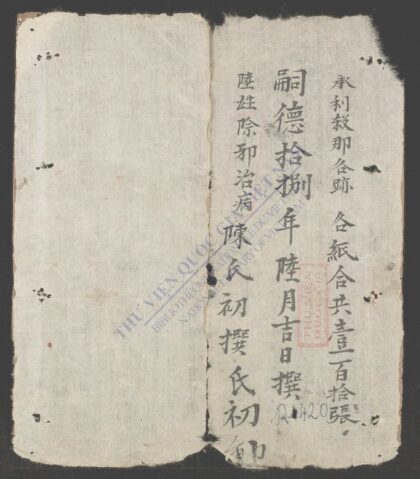 承利殺那各跡 各紙合共壹百拾張
嗣德拾捌年陸月吉日撰
陸姓除邪治病 陳氏初撰氏初
THƯ VIỆN QUỐC GIA VIỆT NAM
NATIONAL LIBRARY OF VIETNAM